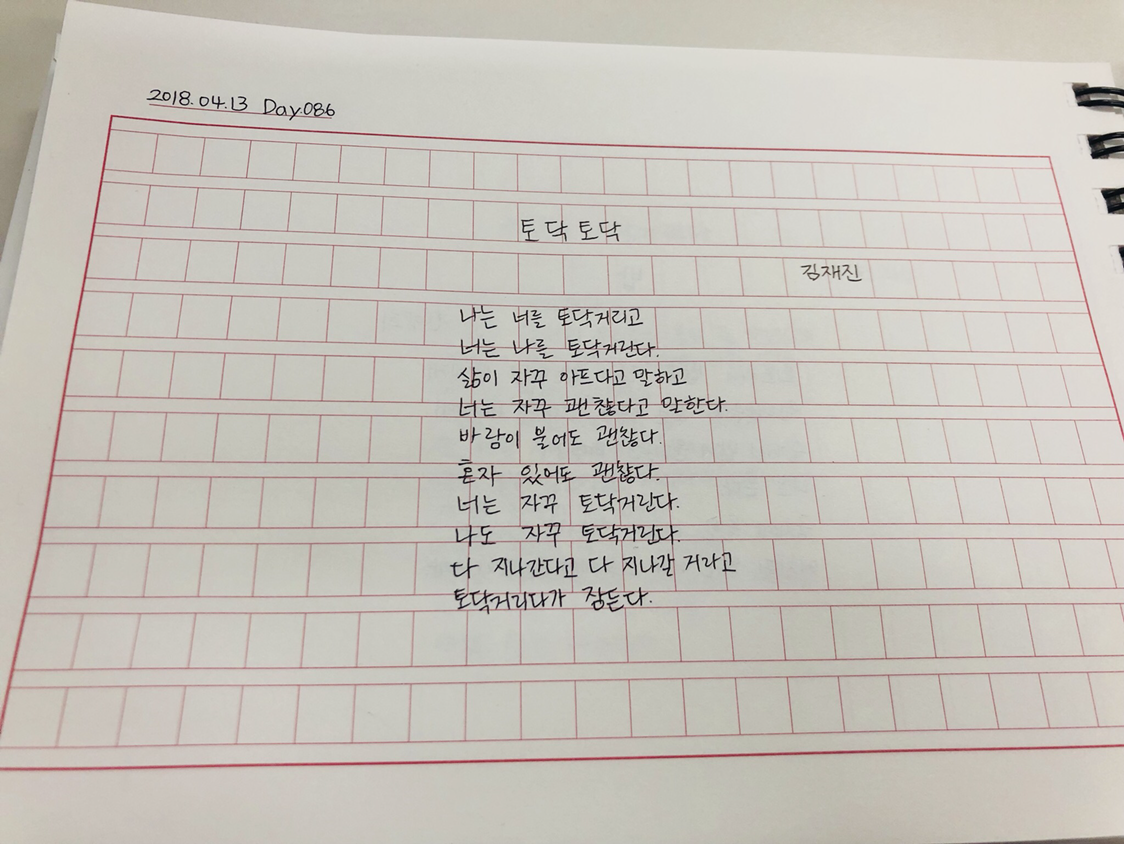 2018.04.13 Day.086
토닥토닥
김재진
나는 너를 토닥거리고
너는 나를 토닥거린다.
삶이 자꾸 아프다고 말하고
너는 자꾸 괜찮다고 말한다.
바람이 불어도 괜찮다.
혼자 있어도 괜찮다.
너는 자꾸 토닥거린다.
나도 자꾸 토닥거린다.
다 지나간다고 다 지나갈 거라고
토닥거리다가 잠든다.